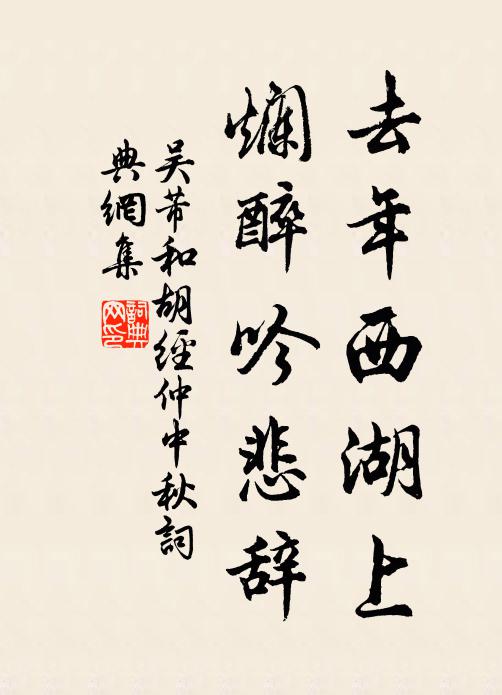 去年西湖上
爛醉吟悲辞
吴芾和胡經仲中秋詞
典網集
詞典网印